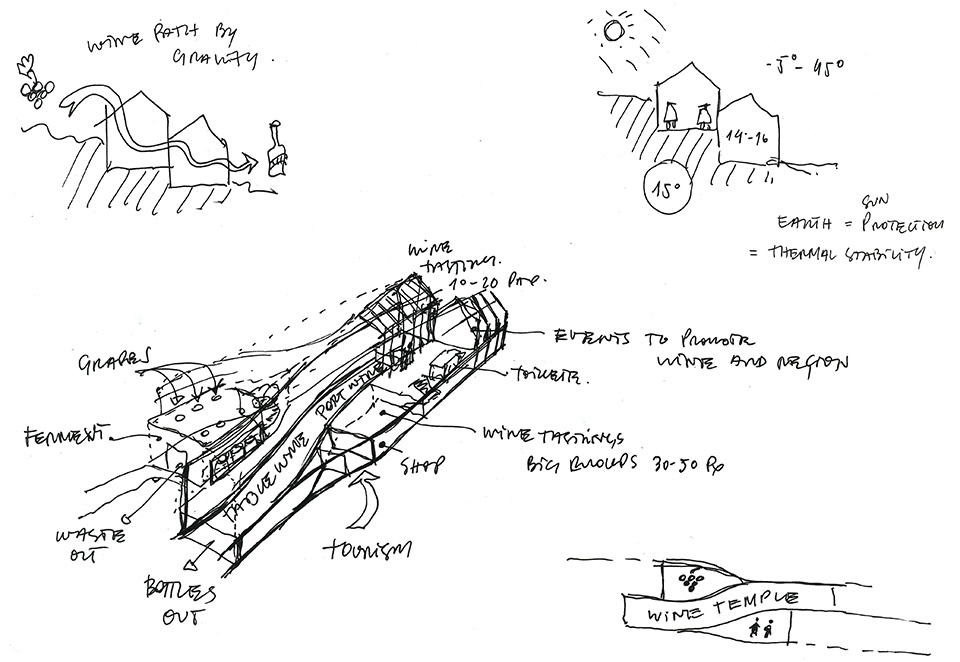 WINE PATH BY
GRAVITY.
-5°-45°
14°-16
15°
SUN
EARTH = PROTECTION
= THERMAL STABILITY.
WINE
TASTING.
10-20
EVENTS TO PROMOTE
WINE AND REGION
TOILETE.
GRAPES
PORT WINE
FERMENT
WINE TASTINGS
BIG 30-50
SHOP
TABLE WINE
WASTE
OUT
TOURISM
BOTTLES
OUT
WINE TEMPLE